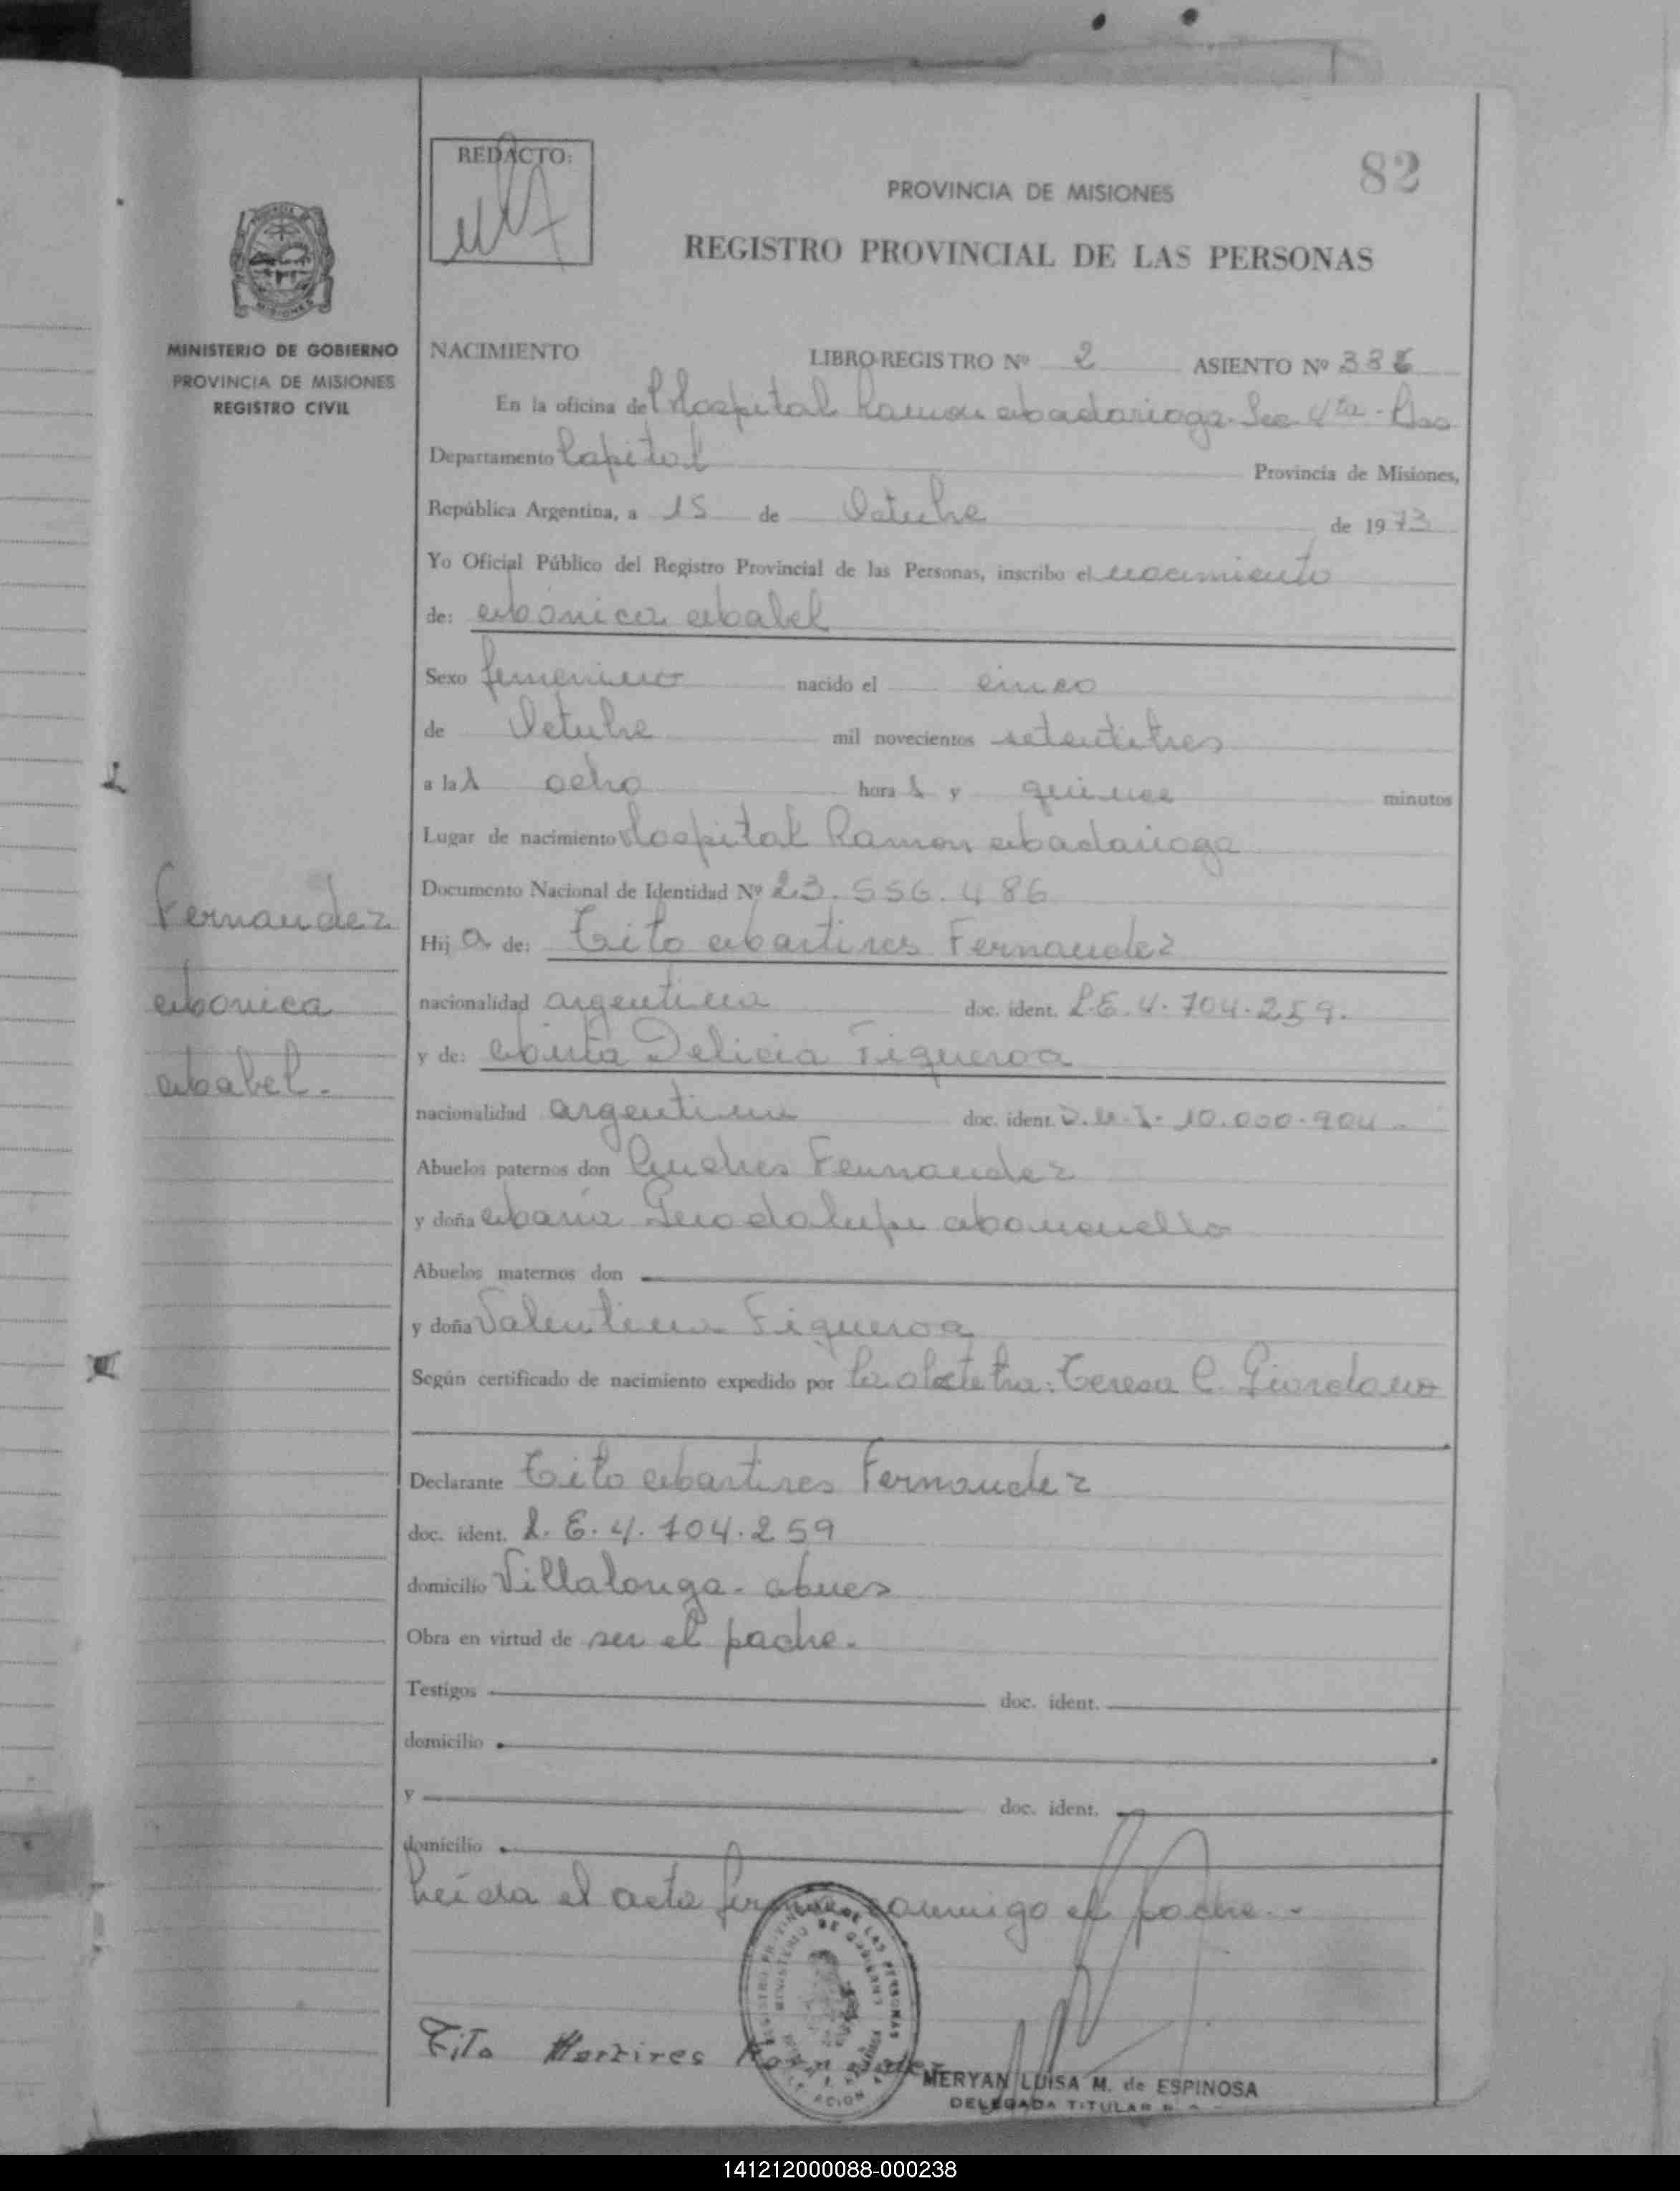 REDACTO:
82
PROVINCIA DE MISIONES
REGISTRO PROVINCIAL DE LAS PERSONAS
MINISTERIO DE GOBIERNO
PROVINCIA DE MISIONES
REGISTRO CIVIL
NACIMIENTO LIBRO-REGISTRO Nº 2 ASIENTO Nº 386
En la oficina de Hospital Ramon Madariaga. Sec. 4ta -
Departamento Capital Provincia de Misiones,
República Argentina, a 15 de Octubre de 1973
Yo Oficial Público del Registro Provincial de las Personas, inscribo el nacimiento
de: Mónica Mabel
Sexo femenino nacido el cinco
de Octubre mil novecientos setentitres
a las ocho horas y quince minutos
Lugar de nacimiento Hospital Ramon Madariaga
Documento Nacional de Identidad Nº 23.556.486
Hija de: Tito Martires Fernandez
nacionalidad argentina doc. ident. L.E. 4.704.259.
y de: Mirta Delicia Figueroa
nacionalidad argentina doc. ident. D.N.I. 10.000.904 -
Abuelos paternos don Andres Fernandez
y doña Maria Guadalupe
Abuelos maternos don
y doña Valentina Figueroa
Según certificado de nacimiento expedido por la obstetra: Teresa C. Giordano
Declarante Tito Martires Fernandez
doc. ident. L. E. 4.704.259
domicilio Villalonga - Mnes
Obra en virtud de ser el padre.
Testigos doc. ident.
domicilio
y doc. ident.
domicilio
Leída el acta firma conmigo el padre. -
Fernandez
Mónica
Mabel.
Tito Martires
MERYAN LUISA M. de ESPINOSA
DELEGADA TITULAR
141212000088-000238